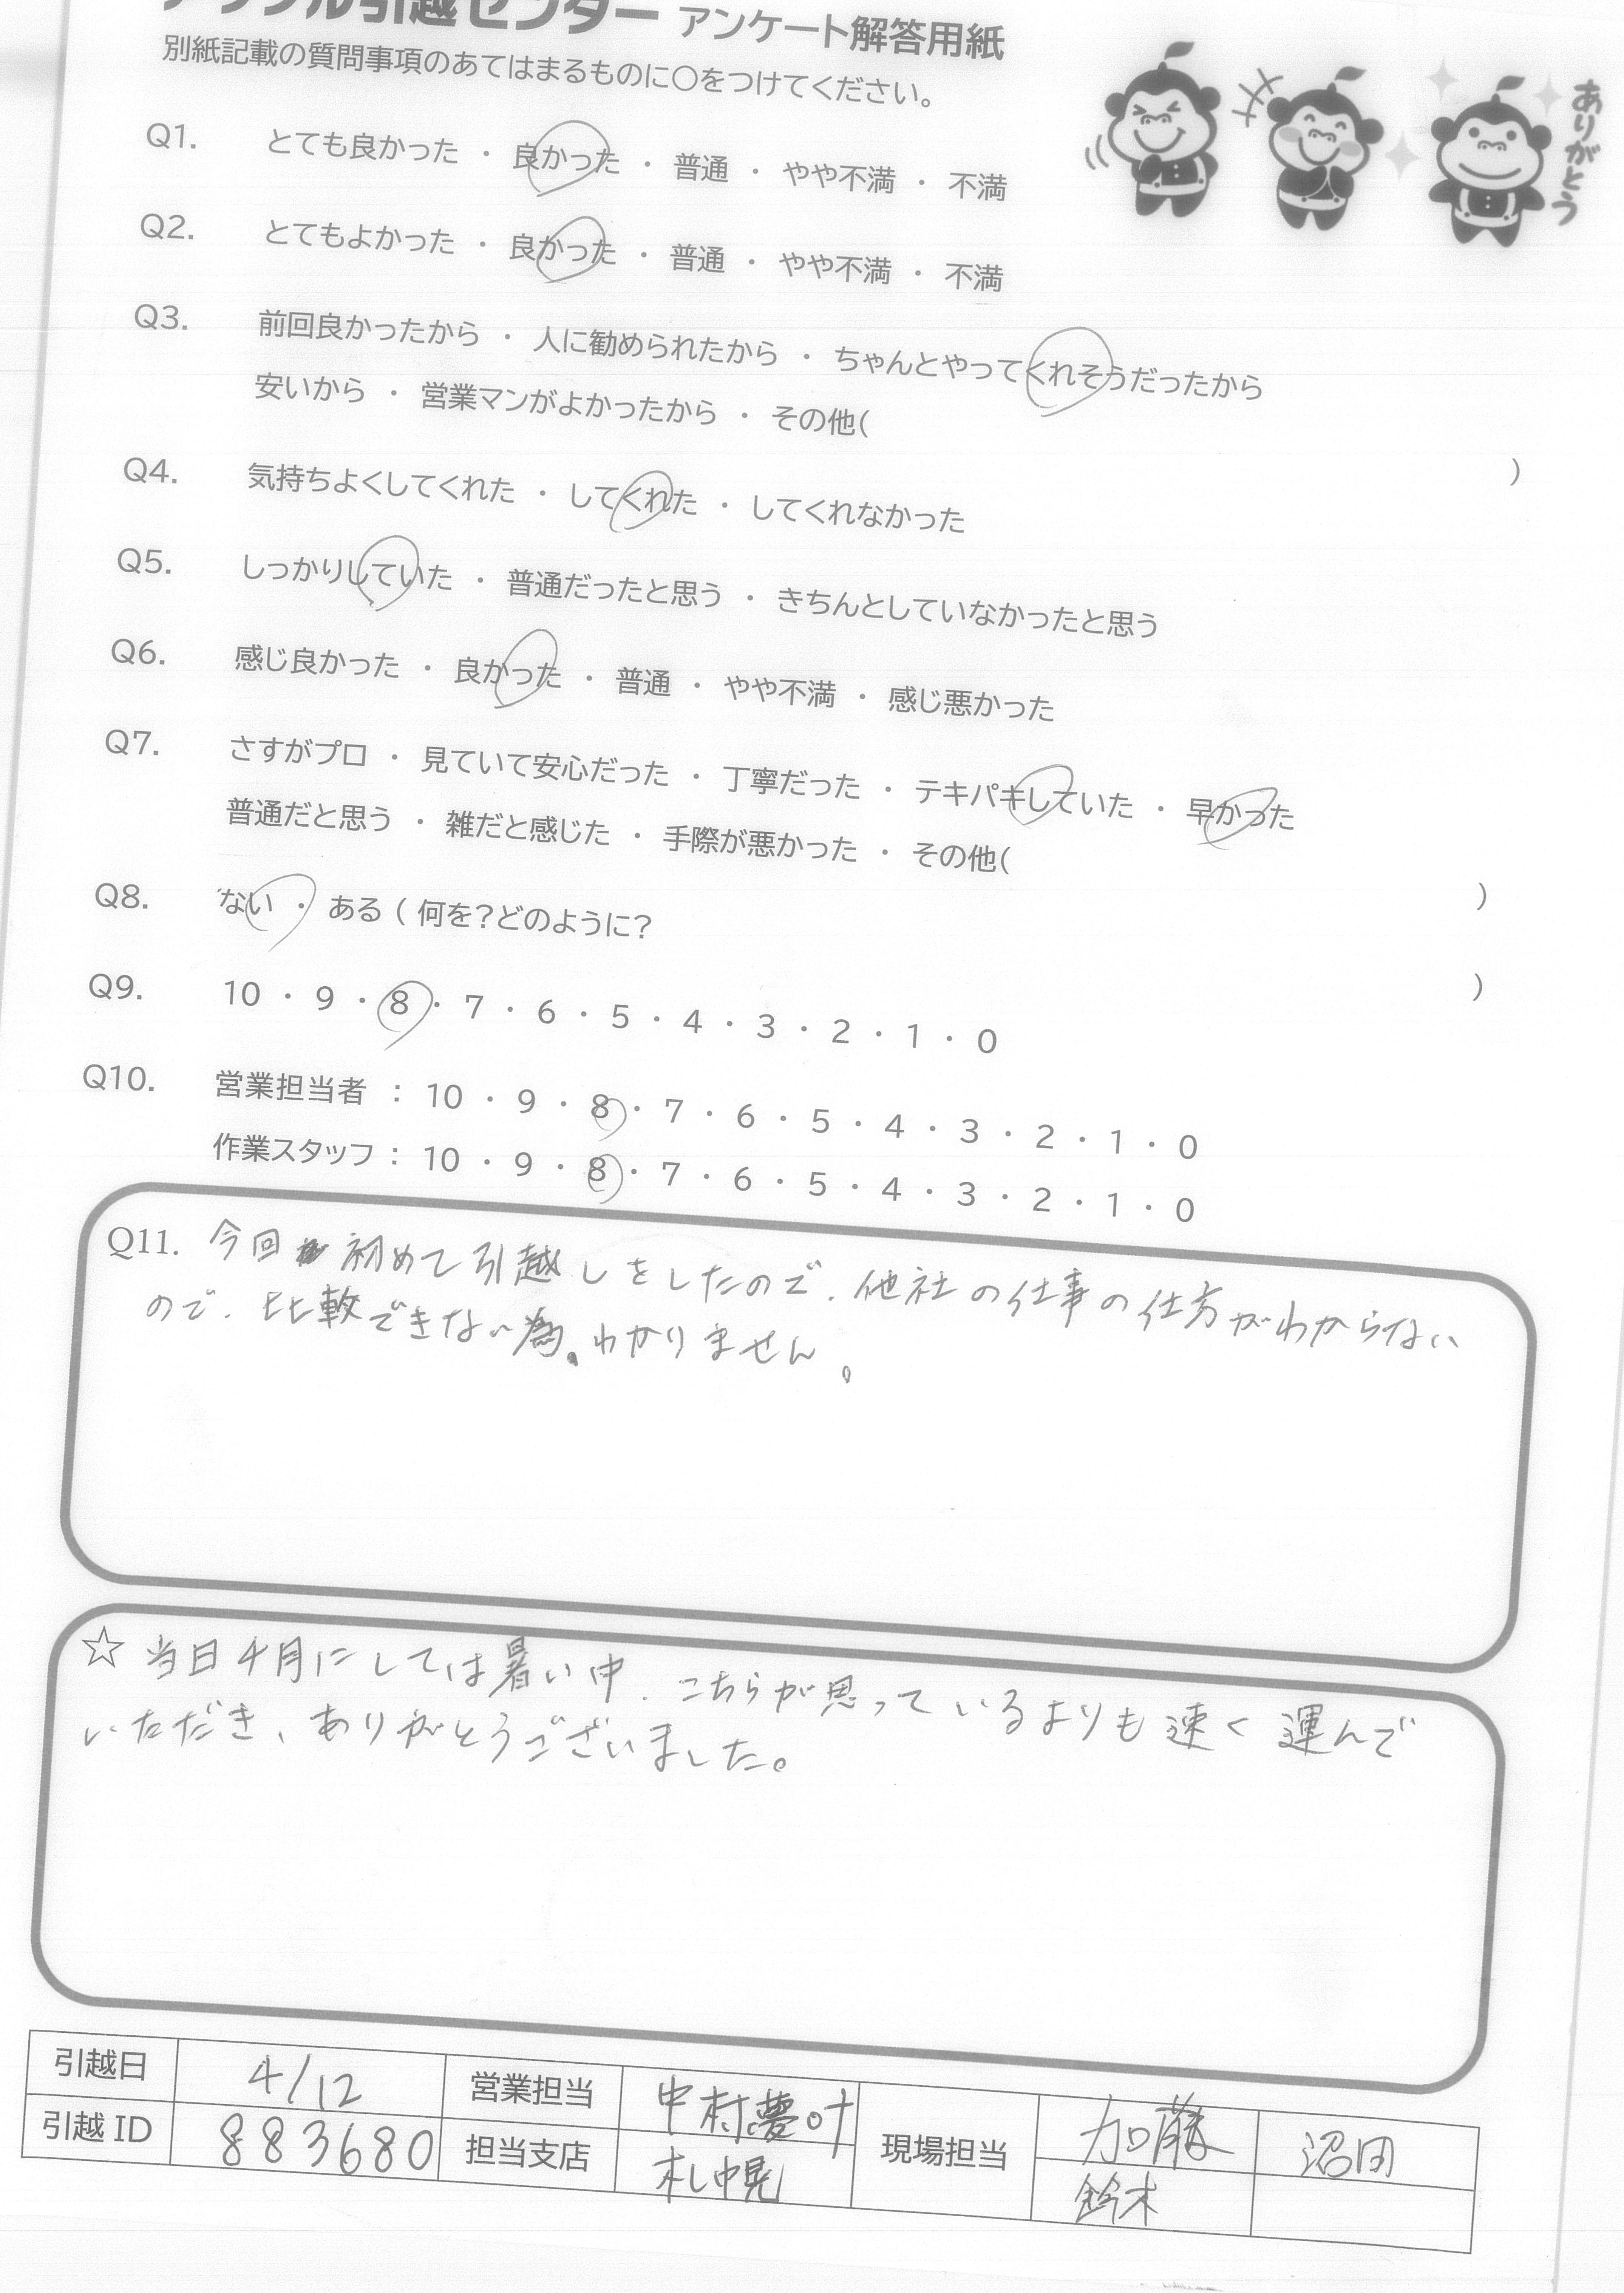 アップル引越センター アンケート解答用紙
別紙記載の質問事項のあてはまるものに〇をつけてください。
ありがとう
Q1. とても良かった ・ 良かった ・ 普通 ・ やや不満 ・ 不満
Q2. とてもよかった ・ 良かった ・ 普通 ・ やや不満 ・ 不満
Q3. 前回良かったから ・ 人に勧められたから ・ ちゃんとやってくれそうだったから
安いから ・ 営業マンがよかったから ・ その他( )
Q4. 気持ちよくしてくれた ・ してくれた ・ してくれなかった
Q5. しっかりしていた ・ 普通だったと思う ・ きちんとしていなかったと思う
Q6. 感じ良かった ・ 良かった ・ 普通 ・ やや不満 ・ 感じ悪かった
Q7. さすがプロ ・ 見ていて安心だった ・ 丁寧だった ・ テキパキしていた ・ 早かった
普通だと思う ・ 雑だと感じた ・ 手際が悪かった ・ その他( )
Q8. ない ・ ある ( 何を?どのように? )
Q9. 10 ・ 9 ・ 8 ・ 7 ・ 6 ・ 5 ・ 4 ・ 3 ・ 2 ・ 1 ・ 0
Q10. 営業担当者 : 10 ・ 9 ・ 8 ・ 7 ・ 6 ・ 5 ・ 4 ・ 3 ・ 2 ・ 1 ・ 0
作業スタッフ : 10 ・ 9 ・ 8 ・ 7 ・ 6 ・ 5 ・ 4 ・ 3 ・ 2 ・ 1 ・ 0
Q11. 今回初めて引越しをしたので、他社の仕事の仕方がわからない
ので、比較できない為、わかりません。
☆ 当日4月にしては暑い中、こちらが思っているよりも速く運んで
いただき、ありがとうございました。
引越日 4/12 営業担当 中村夢叶 現場担当 加藤 沼田
引越ID 883680 担当支店 札幌 鈴木